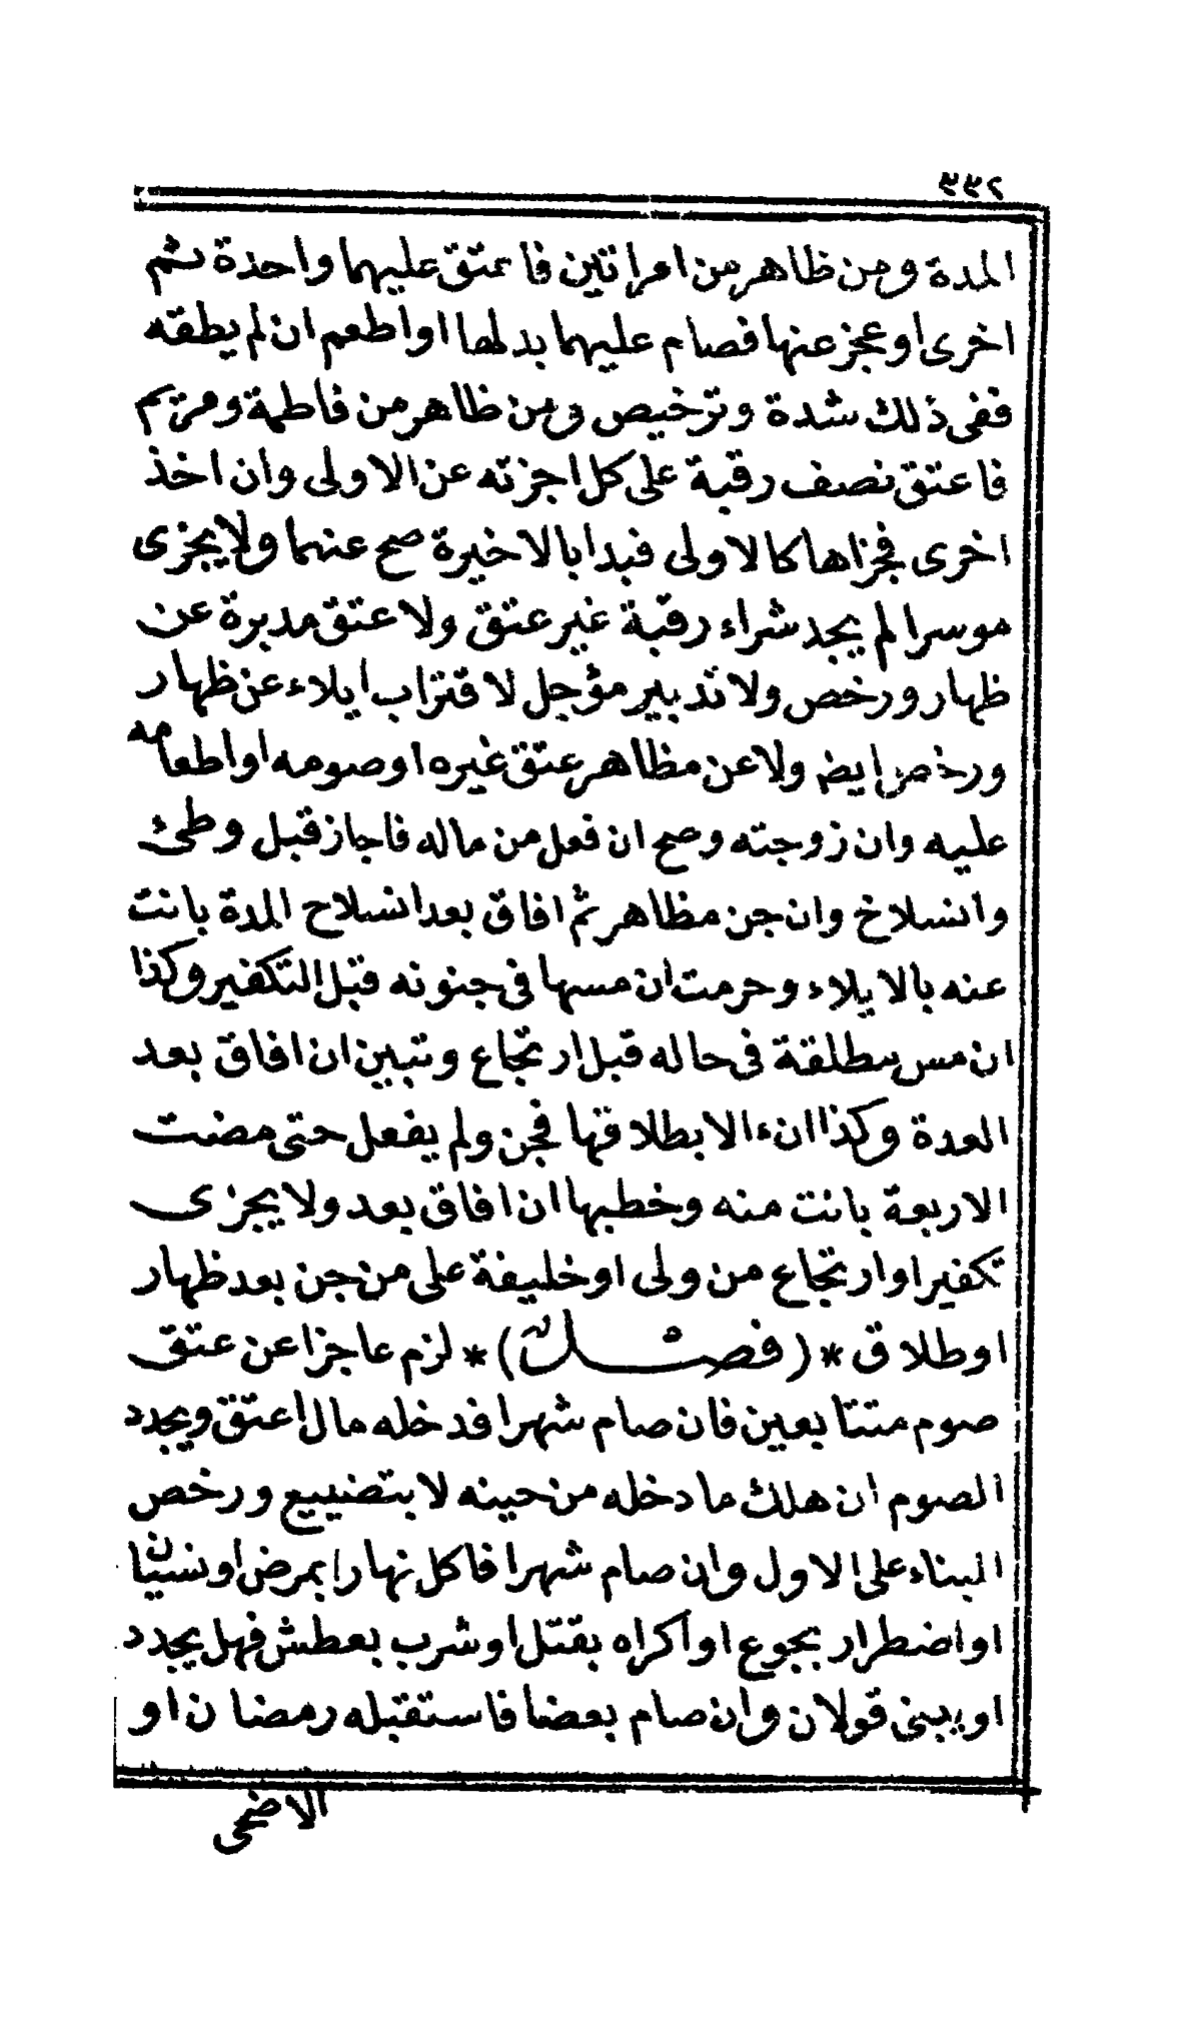 ٣٣٢
المدة ومن ظاهر من امراتين فاعتق عليهما واحدة ثم
اخرى او عجز عنها فصام عليهما بدلها او اطعم ان لم يطقه
ففى ذلك شدة وترخيص ومن ظاهر من فاطمة ومريم
فاعتق نصف رقبة على كل اجزته عن الاولى وان اخذ
اخرى فجزاها كالاولى فبدا بالاخيرة صح عنهما ولا يجزى
موسرا لم يجد شراء رقبة غير عتق ولا عتق مدبرة عن
ظهار ورخص ولا تدبير مؤجل لاقتراب ايلاء عن ظهار
ورخص ايض ولا عن مظاهر عتق غيره او صومه او اطعامه
عليه وان زوجته وصح ان فعل من ماله فاجاز قبل وطئ
وانسلاخ وان جن مظاهر ثم افاق بعد انسلاح المدة بانت
عنه بالايلاء وحرمت ان مسها فى جنونه قبل التكفير وكذا
ان مس مطلقة فى حاله قبل ارتجاع وتبين ان افاق بعد
العدة وكذا ان ءالا بطلاقها فجن ولم يفعل حتى مضت
الاربعة بانت منه وخطبها ان افاق بعد ولا يجزى
تكفير او ارتجاع من ولى او خليفة على من جن بعد ظهار
او طلاق * (فصل) * لزم عاجزا عن عتق
صوم متتابعين فان صام شهرا فدخله مال اعتق ويجدد
الصوم ان هلك ما دخله من حينه لا بتضييع ورخص
البناء على الاول وان صام شهرا فاكل نهارا بمرض او نسيان
او اضطرار بجوع او اكراه بقتل او شرب بعطش فهل يجدد
او يبنى قولان وان صام بعضا فاستقبله رمضان او
الاضحى